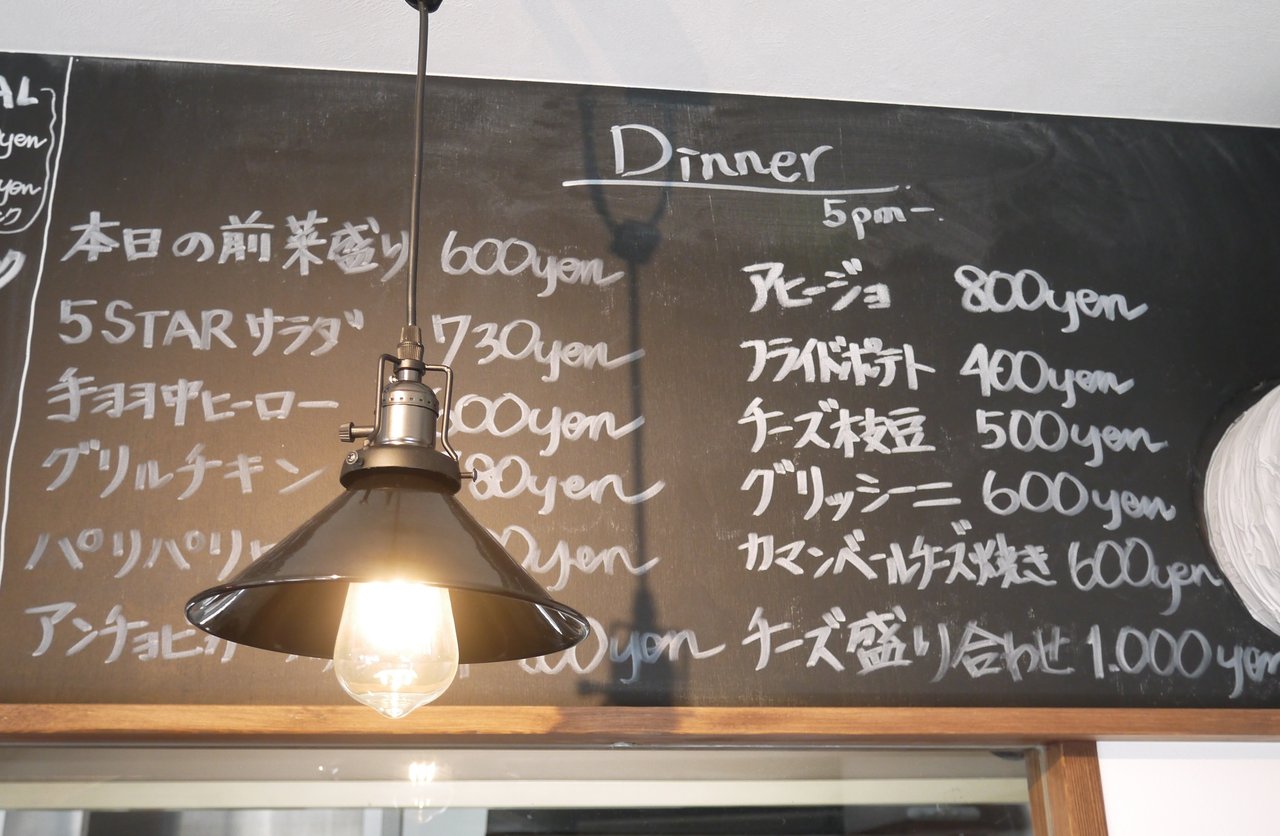 AL
yen
yen
Dinner
5pm〜
本日の前菜盛り 600yen
5STARサラダ 730yen
手羽中ヒーロー 00yen
グリルチキン 80yen
パリパリ 0yen
アンチョビ 00yen
アヒージョ 800yen
フライドポテト 400yen
チーズ枝豆 500yen
グリッシーニ 600yen
カマンベールチーズ焼き 600yen
チーズ盛り合わせ 1.000yen